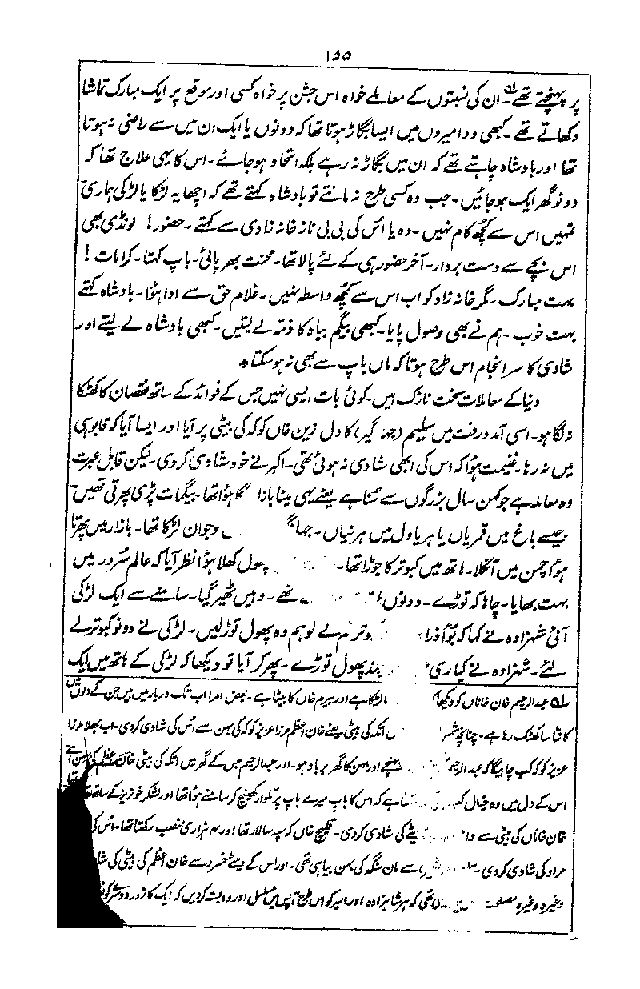 ۱۵۵
پر پہنچتے تھے۔ ان کی نسبتوں کے معاملے خواہ اس جشن پر خواہ کسی اور موقع پر ایک مبارک تماشا
دکھاتے تھے۔ کبھی دو امیروں میں ایسا بگاڑ ہوتا تھا کہ دونوں یا ایک ان میں سے راضی نہ ہوتا
تھا اور بادشاہ چاہتے تھے کہ ان میں بگاڑ نہ رہے بلکہ اتحاد ہو جائے۔ اس کا یہی علاج تھا کہ
دونو گھر ایک ہو جائیں۔ جب وہ کسی طرح نہ مانتے تو بادشاہ کہتے تھے کہ اچھا یہ لڑکا یا لڑکی ہماری
تمہیں اس سے کچھ کام نہیں۔ وہ یا اس کی بی بی ناز خانہ زادی سے کہتے۔ حضور! لونڈی بھی
اس بچے سے دست بردار۔ آخر حضور ہی کے لئے پالا تھا۔ محنت بھر پائی۔ باپ کہتا۔ کرامات!
بہت مبارک۔ مگر خانہ زاد کو اب اس سے کچھ واسطہ نہیں۔ غلام حق سے ادا ہوا۔ بادشاہ کہتے
بہت خوب۔ ہم نے بھی وصول پایا۔ کبھی بیگم بیاہ کا ذمہ لے لیتیں۔ کبھی بادشاہ لے لیتے اور
شادی کا سرانجام اس طرح ہوتا کہ ماں باپ سے بھی نہ ہو سکتا۔
دنیا کے معاملات سخت نازک ہیں۔ کوئی بات ایسی نہیں جس کے فوائد کے ساتھ نقصان کا کھٹکا
نہ لگا ہو۔ اسی آمد و رفت میں سلیم (جہانگیر) کا دل زین خاں کوکہ کی بیٹی پر آیا اور ایسا آیا کہ قابو ہی
میں نہ رہا۔ غنیمت ہوا کہ اس کی ابھی شادی نہ ہوئی تھی۔ اکبر نے خود شادی کر دی۔ لیکن قابل عبرت
وہ معاملہ ہے جو کہن سال بزرگوں سے سنا ہے یعنے یہی مینا بازار لگا ہوا تھا۔ بیگمات پڑی پھرتی تھیں
جیسے باغ میں قمریاں یا ہریاول میں ہرنیاں۔ جہا نوجوان لڑکا تھا۔ بازار میں پھرتا
ہوا چمن میں آ نکلا۔ ہاتھ میں کبوتر کا جوڑا تھا۔ پھول کھلا ہوا نظر آیا کہ عالم سُرور میں
بہت بھایا۔ چاہا کہ توڑے۔ دونوں تھے۔ وہیں ٹھیر گیا۔ سامنے سے ایک لڑکی
آئی شہزادہ نے کہا کہ بُوا ذرا کبوتر تم لے لو ہم وہ پھول توڑ لیں۔ لڑکی نے دونو کبوتر لے
لئے۔ شہزادہ نے کیاری چند پھول توڑے۔ پھر کر آیا تو دیکھا کہ لڑکی کے ہاتھ میں ایک
عبدالرحیم خان خاناں کو دیکھا لڑکا ہے اور بیرم خاں کا بیٹا ہے۔ بعض امرا اب تک دربار میں ہیں جن کے دلوں
کانٹا سا کھٹک رہا ہے۔ چنانچہ اتکہ کی بیٹی یعنے خان اعظم مرزا عزیز کوکہ کی بہن سے اس کی شادی کر دی۔ اب بھلا مرزا
عزیز کوکہ کب چاہیگا کہ عبدالر پہنچے اور بہن کا گھر برباد ہو۔ اور عبدالرحیم جس کے گھر میں اتکہ کی بیٹی
اس کے دل میں وہ خیال کہ اس کا باپ میرے باپ پر تلوار کھینچ کر سامنے ہوا تھا اور لشکر خونریز کے ساتھ
خان خاناں کی بیٹی سے بیٹے کی شادی کر دی۔ قلیچ خاں کہ سپہ سالار تھا اور ہزاری منصب رکھتا تھا۔ اس کی
مراد کی شادی کر دی۔ سے مان سنگھ کی بہن بیاہی تھی۔ اور اس کے بیٹے خسرو سے خان اعظم کی بیٹی کی
وغیرہ وغیرہ مصلحت تھی کہ ہر شاہزادہ اور امیر کو اس طرح آپس میں مسلسل اور وابستہ کر دیں کہ ایک کا زور